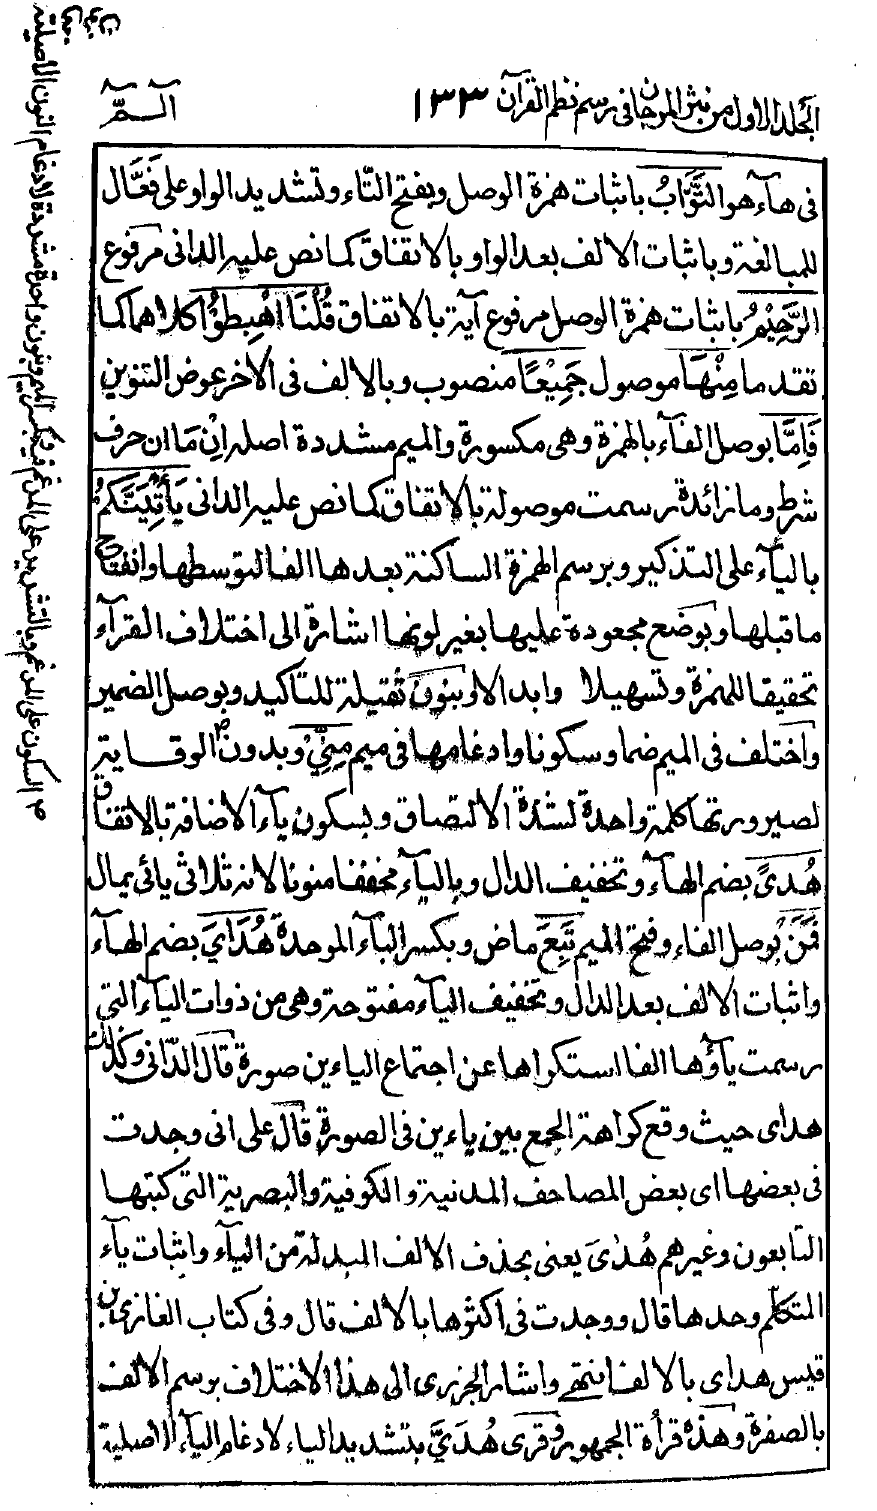 المجلد الاول من نثر المرجان فى رسم نظم القرآن ١٣٣ الـــمّ
فى هآء هو التَّوَّابُ باثبات همزة الوصل وبفتح التّاء وتشديد الواو على فَعَّال
للمبالغة وباثبات الالف بعد الواو بالاتفاق كما نص عليه الدانى مرفوع
الرَّحِيْمُ باثبات همزة الوصل مرفوع آية بالاتفاق قُلْنَا اهْبِطُوْا كلاهما كما
تقدما مِنْهَا موصول جَمِيْعًا منصوب وبالالف فى الآخر عوض التنوين
فَاِمَّا بوصل الفآء بالهمزة وهى مكسورة والميم مشددة اصله اِنْ مَا ان حرف
شرط وما زائدة رسمت موصولة بالاتفاق كما نص عليه الدانى يَأْتِيَنَّكُمْ
باليآء على التذكير وبرسم الهمزة الساكنة بعدها الفا لتوسطها وانفتاح
ما قبلها وبوضع مجعودة عليها بغير لونها اشارة الى اختلاف القرآء
تحقيقا للهمزة وتسهيلا وابدالا وبنون ثقيلة للتاكيد وبوصل الضمير
واختلف فى الميم ضما وسكونا وادغامها فى ميم مِنِّيْ وبدون الوقاية
لصيرورتها كلمة واحدة لشدة الالتصاق وبسكون يآء الاضافة بالاتفاق
هُدىً بضم الهآء وتخفيف الدال وباليآء مخففا منونا لانه ثلاثى يائى يمال
فَمَنْ بوصل الفاء وفتح الميم تَبِعَ ماض وبكسر البآء الموحدة هُدَايَ بضم الهآء
واثبات الالف بعد الدال وتخفيف اليآء مفتوحة وهى من ذوات اليآء التى
رسمت يآؤها الفا استكراها عن اجتماع الياءين صورة قال الدّانى وكذلك
هداى حيث وقع كراهة الجمع بين ياءين فى الصورة قال على انى وجدت
فى بعضها اى بعض المصاحف المدنية والكوفية والبصرية التى كتبها
التابعون وغيرهم هُدٰىَ يعنى بحذف الالف المبدلة من اليآء واثبات يآء
المتكلم وحدها قال ووجدت فى اكثرها بالالف قال وفى كتاب الغازى بن
قيس هداى بالالف انتهى واشار الجزرى الى هذا الاختلاف برسم الالف
بالصفرة وهذه قرأة الجمهور وقرى هُدَيَّ بتشديد الياء لادغام اليآء الاصلية
ص السكون على المدغم وبالتشديد على المدغم فيه وبكسر الميم وبنون واحدة مشددة لادغام النون الاصلية